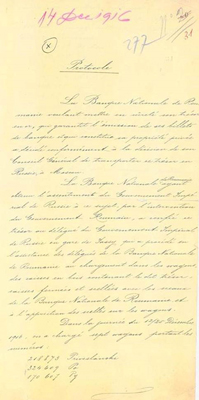 14 Dec 1916
277
31
Protocole
La Banque Nationale de Rou-
manie voulant mettre en sûreté son trésor
or, qui garantit l'émission de ses billets
de banque et qui constitue sa propriété privée
a décidé conformément à la décision de son
Conseil Général de transporter ce trésor en
Russie, à Moscou.
La Banque Nationale ayant
obtenu l'assentiment du Gouvernement Impé-
rial de Russie à ce sujet, par l'intervention
du Gouvernement Roumain, a remis ce
trésor au délégué du Gouvernement Impérial
de Russie en gare de Jassy, qui a procédé en
l'assistance des délégués de la Banque Nationale
de Roumanie au chargement dans les wagons
des caisses en bois contenant le dit trésor
caisses fermées et scellées avec les sceaux
de la Banque Nationale de Roumanie et
à l'apposition des scellés sur les wagons.
Dans la journée du Décembre
1916, on a chargé sept wagons portant les
numéros